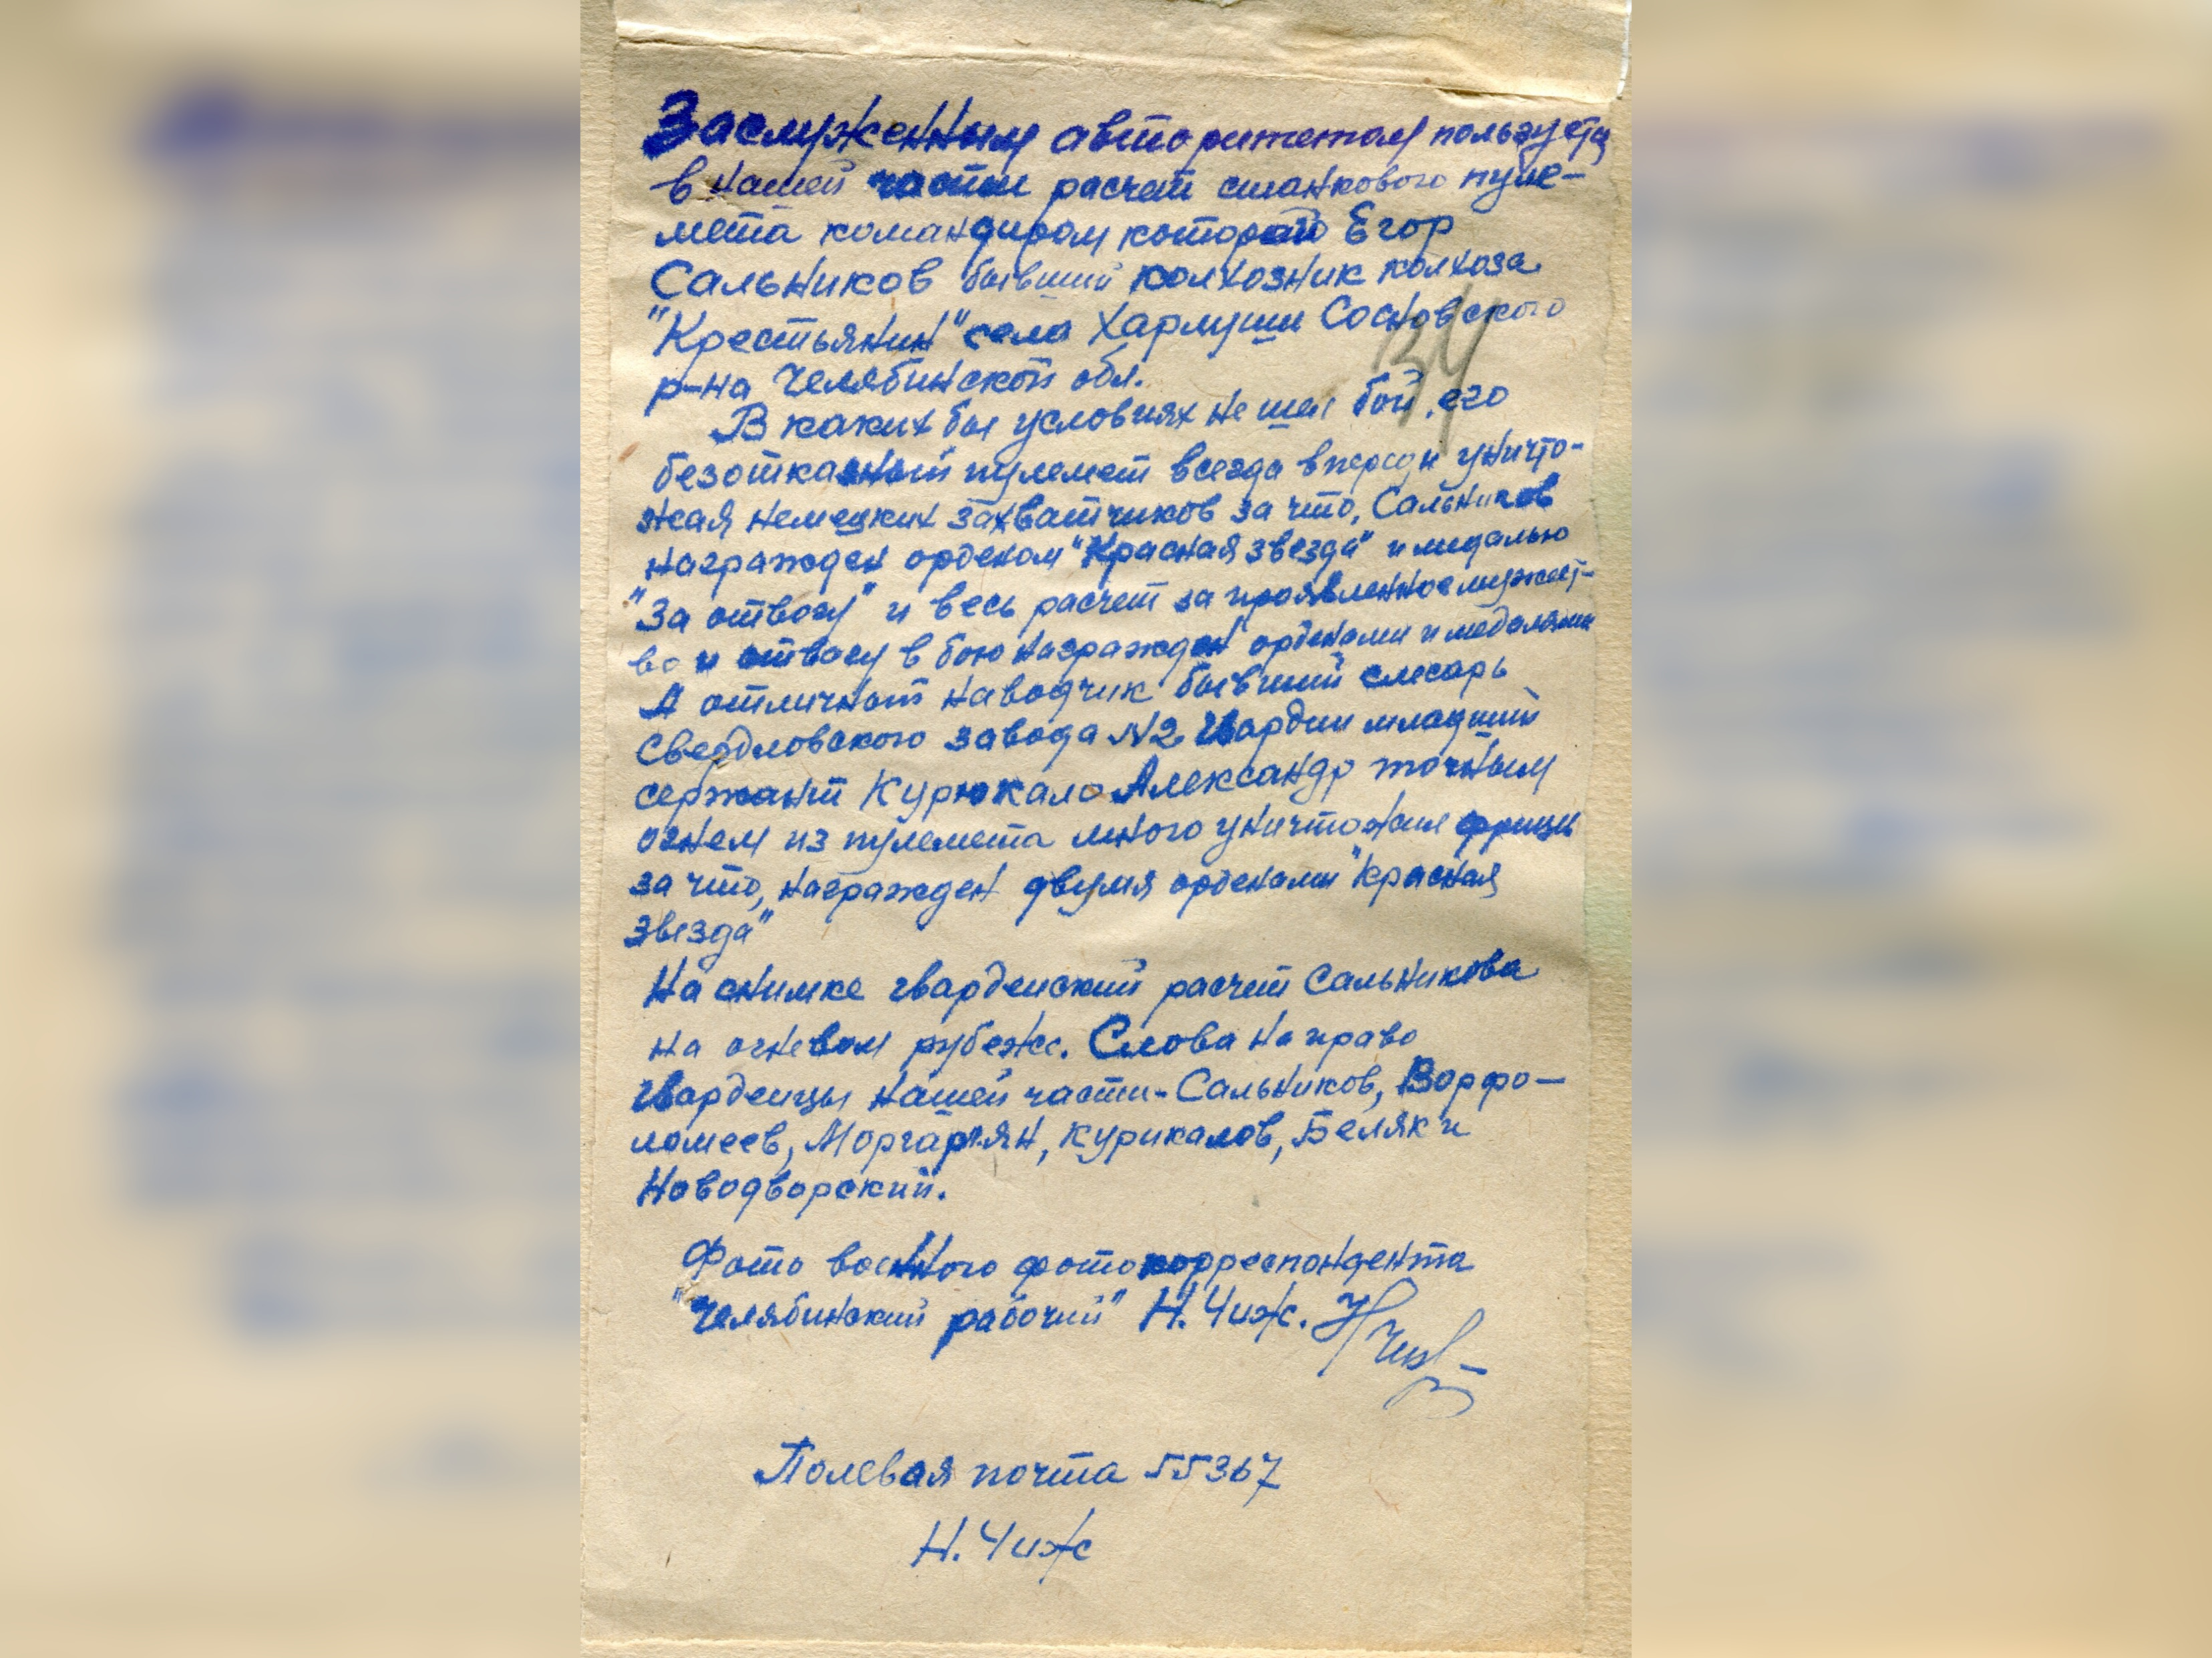 Заслуженным авторитетом пользуется
в нашей части расчет станкового пуле-
мета командиром которого Егор
Сальников бывший колхозник колхоза
"Крестьянин" села Хармуши Сосновского
р-на Челябинской обл.
34
В каких бы условиях не шел бой, его
безотказный пулемет всегда впереди уничто-
жая немецких захватчиков за что, Сальников
награжден орденом "Красная звезда" и медалью
"За отвагу" и весь расчет за проявленное мужест-
во и отвагу в бою награжден орденами и медалями
А отличный наводчик бывший слесарь
Свердловского завода №2 Гвардии младший
сержант Курюкало Александр точным
огнем из пулемета много уничтожил фрицы
за что, награжден двумя орденами "Красная
звезда"
На снимке гвардейский расчет Сальникова
на огневом рубеже. Слева на право
Гвардейцы нашей части - Сальников, Варфо-
ломеев, Моргарян, Курикалов, Беляк и
Новодворский.
Фото военного фотокорреспондента
"Челябинский рабочий" Н. Чиж.
Полевая почта 55367
Н. Чиж